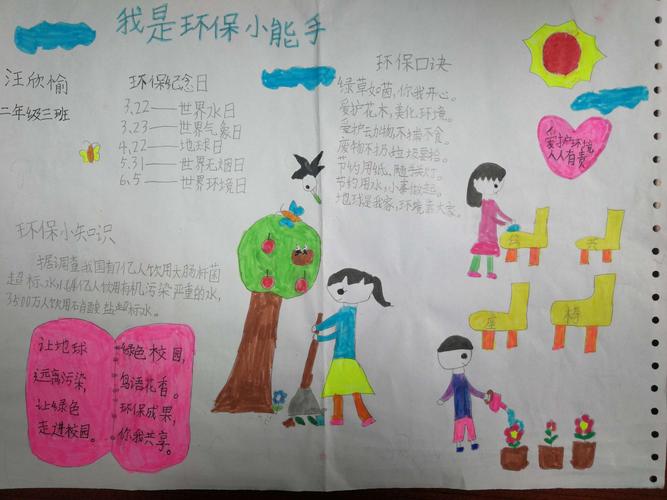 我是环保小能手
汪欣愉
二年级三班
环保纪念日
3,22——世界水日
3.23——世界气象日
4,22——地球日
5.31——世界无烟日
6、5——世界环境日
环保口诀
绿草如茵，你我开心。
爱护花木，美化环境。
爱护动物，不捕不食。
废物不扔，垃圾要捡。
节约用纸，随手关灯。
节约用水，小事做起。
地球是我家，环境靠大家。
爱护环境
人人有责
公
共
座
椅
环保小知识
据调查我国有7亿人饮用大肠杆菌
超标水，1.64亿人饮用有机污染严重的水，
3500万人饮用硝酸盐超标水。
让地球
远离污染，
让绿色
走进校园。
绿色校园，
鸟语花香。
环保成果，
你我共享。